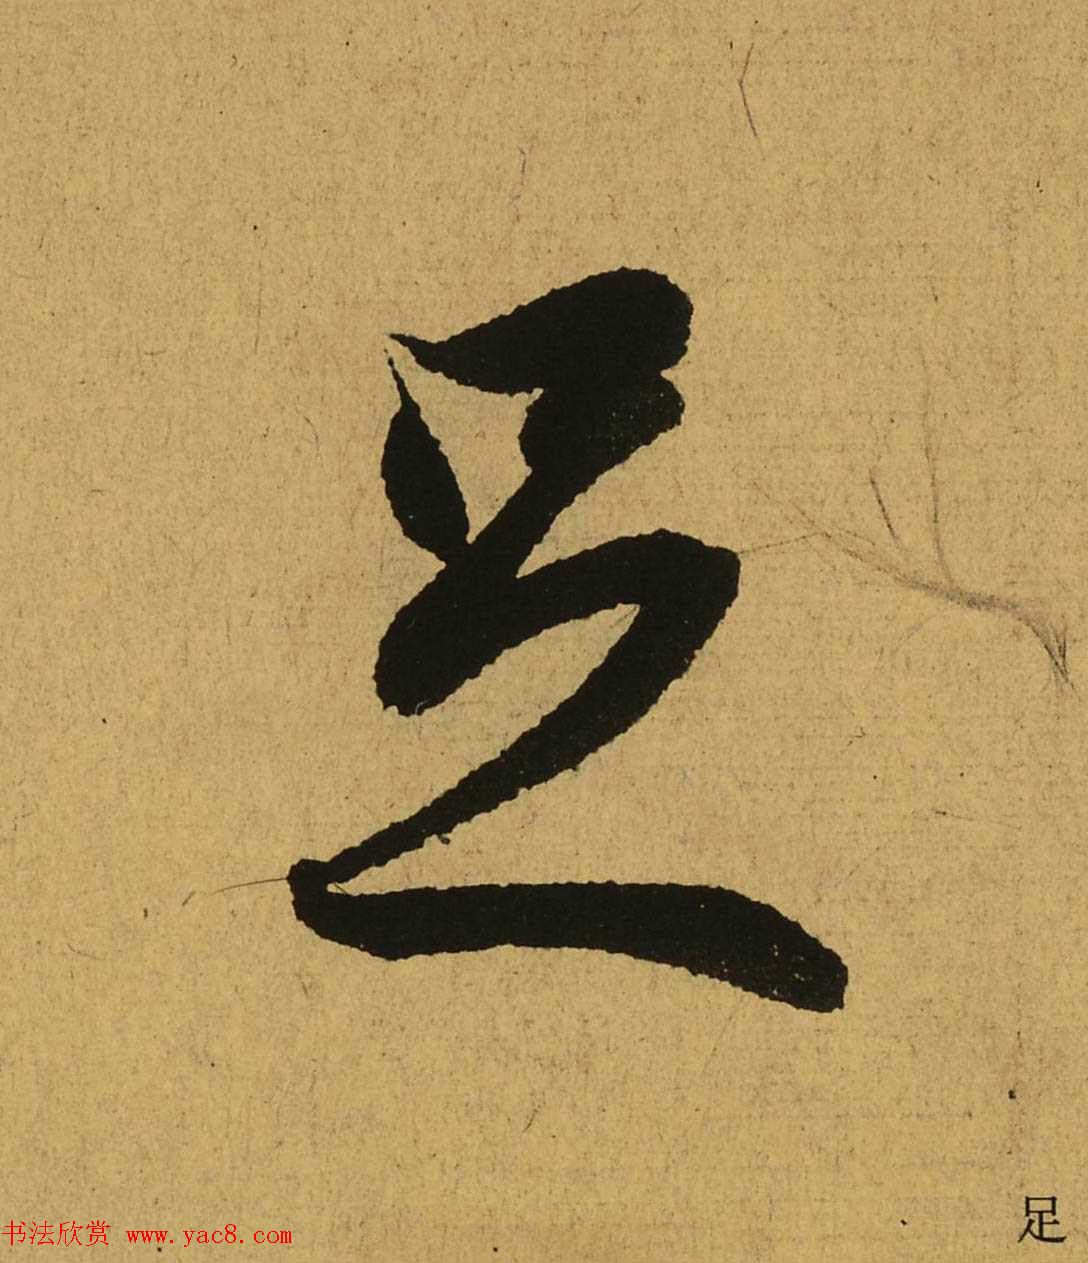 足
书法欣赏 www.yac8.com
足